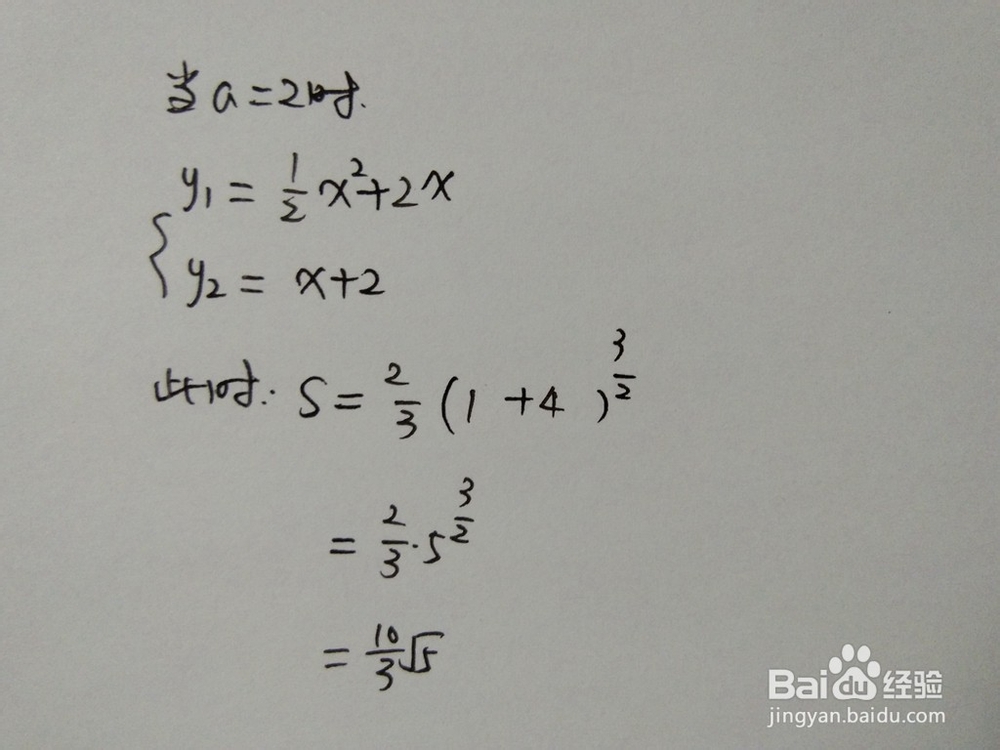 当a=2时.
y₁ = 1/2 x²+2x
{ y₂ = x+2
此时. S = 2/3 (1 +4 )^(3/2)
= 2/3 · 5^(3/2)
= 10/3 √5
Baidu经验
jingyan.baidu.com